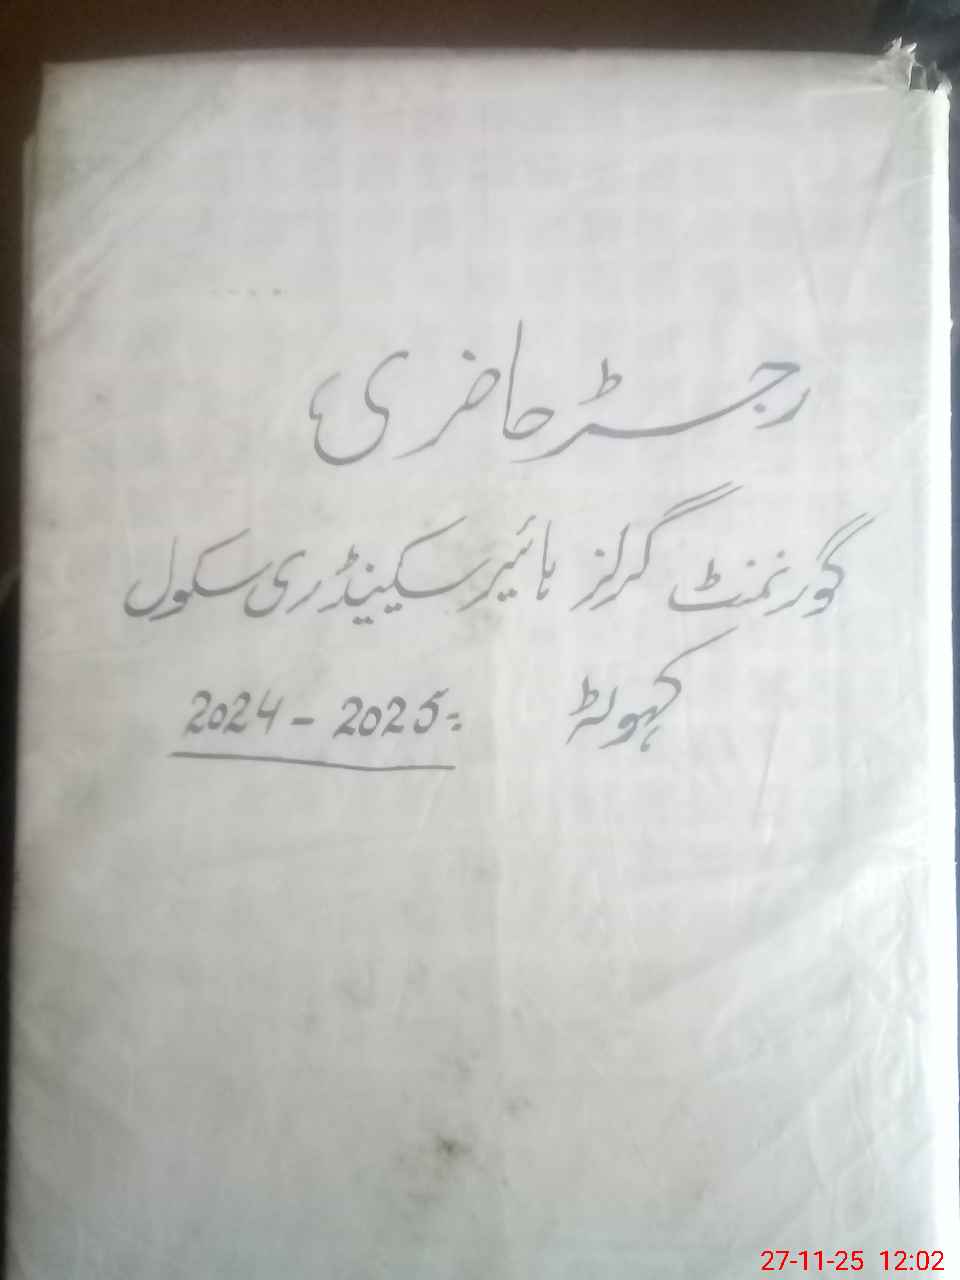 رجسٹر حاضری
گورنمنٹ گرلز ہائیر سکینڈری سکول
کہوٹہ 2024 - 2025:
27-11-25 12:02